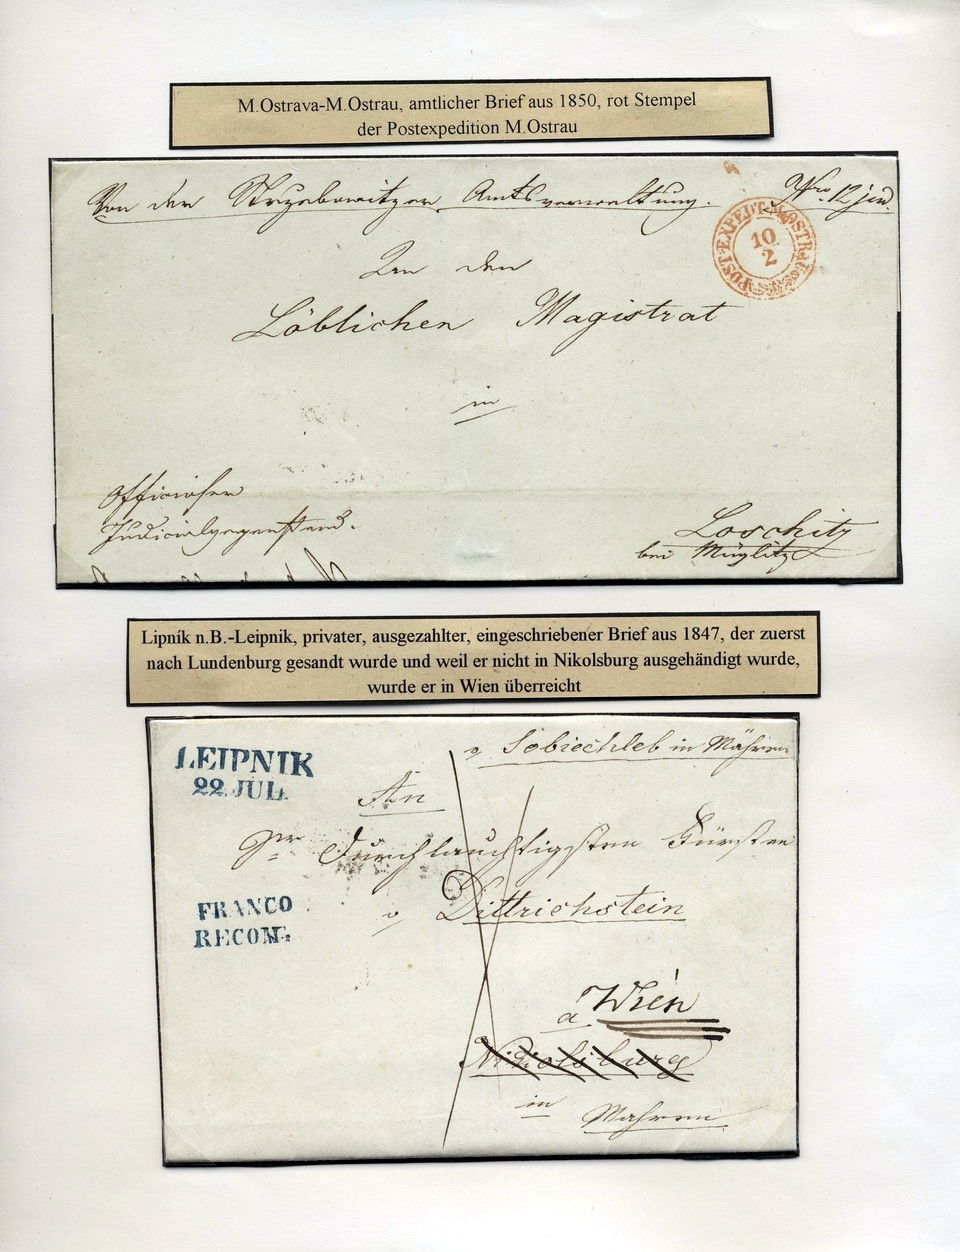 M.Ostrava-M.Ostrau, amtlicher Brief aus 1850, rot Stempel
der Postexpedition M.Ostrau
Von der Strzebowitzer Amtsverwaltung. Nro. 12 jud.
POST-EXPEDT. M: OSTRAU
10
2
An den
Löblichen Magistrat
in
Officioser
Judicialgegenstand.
Loschitz
bei Müglitz
Lipník n.B.-Leipnik, privater, ausgezahlter, eingeschriebener Brief aus 1847, der zuerst
nach Lundenburg gesandt wurde und weil er nicht in Nikolsburg ausgehändigt wurde,
wurde er in Wien überreicht
LEIPNIK
22. JUL.
v Sobiechleb in Mähren
An
Durchlauchtigsten Fürsten
v Dittrichstein
FRANCO
RECOM:
a Wien
Nikolsburg
in
Mähren